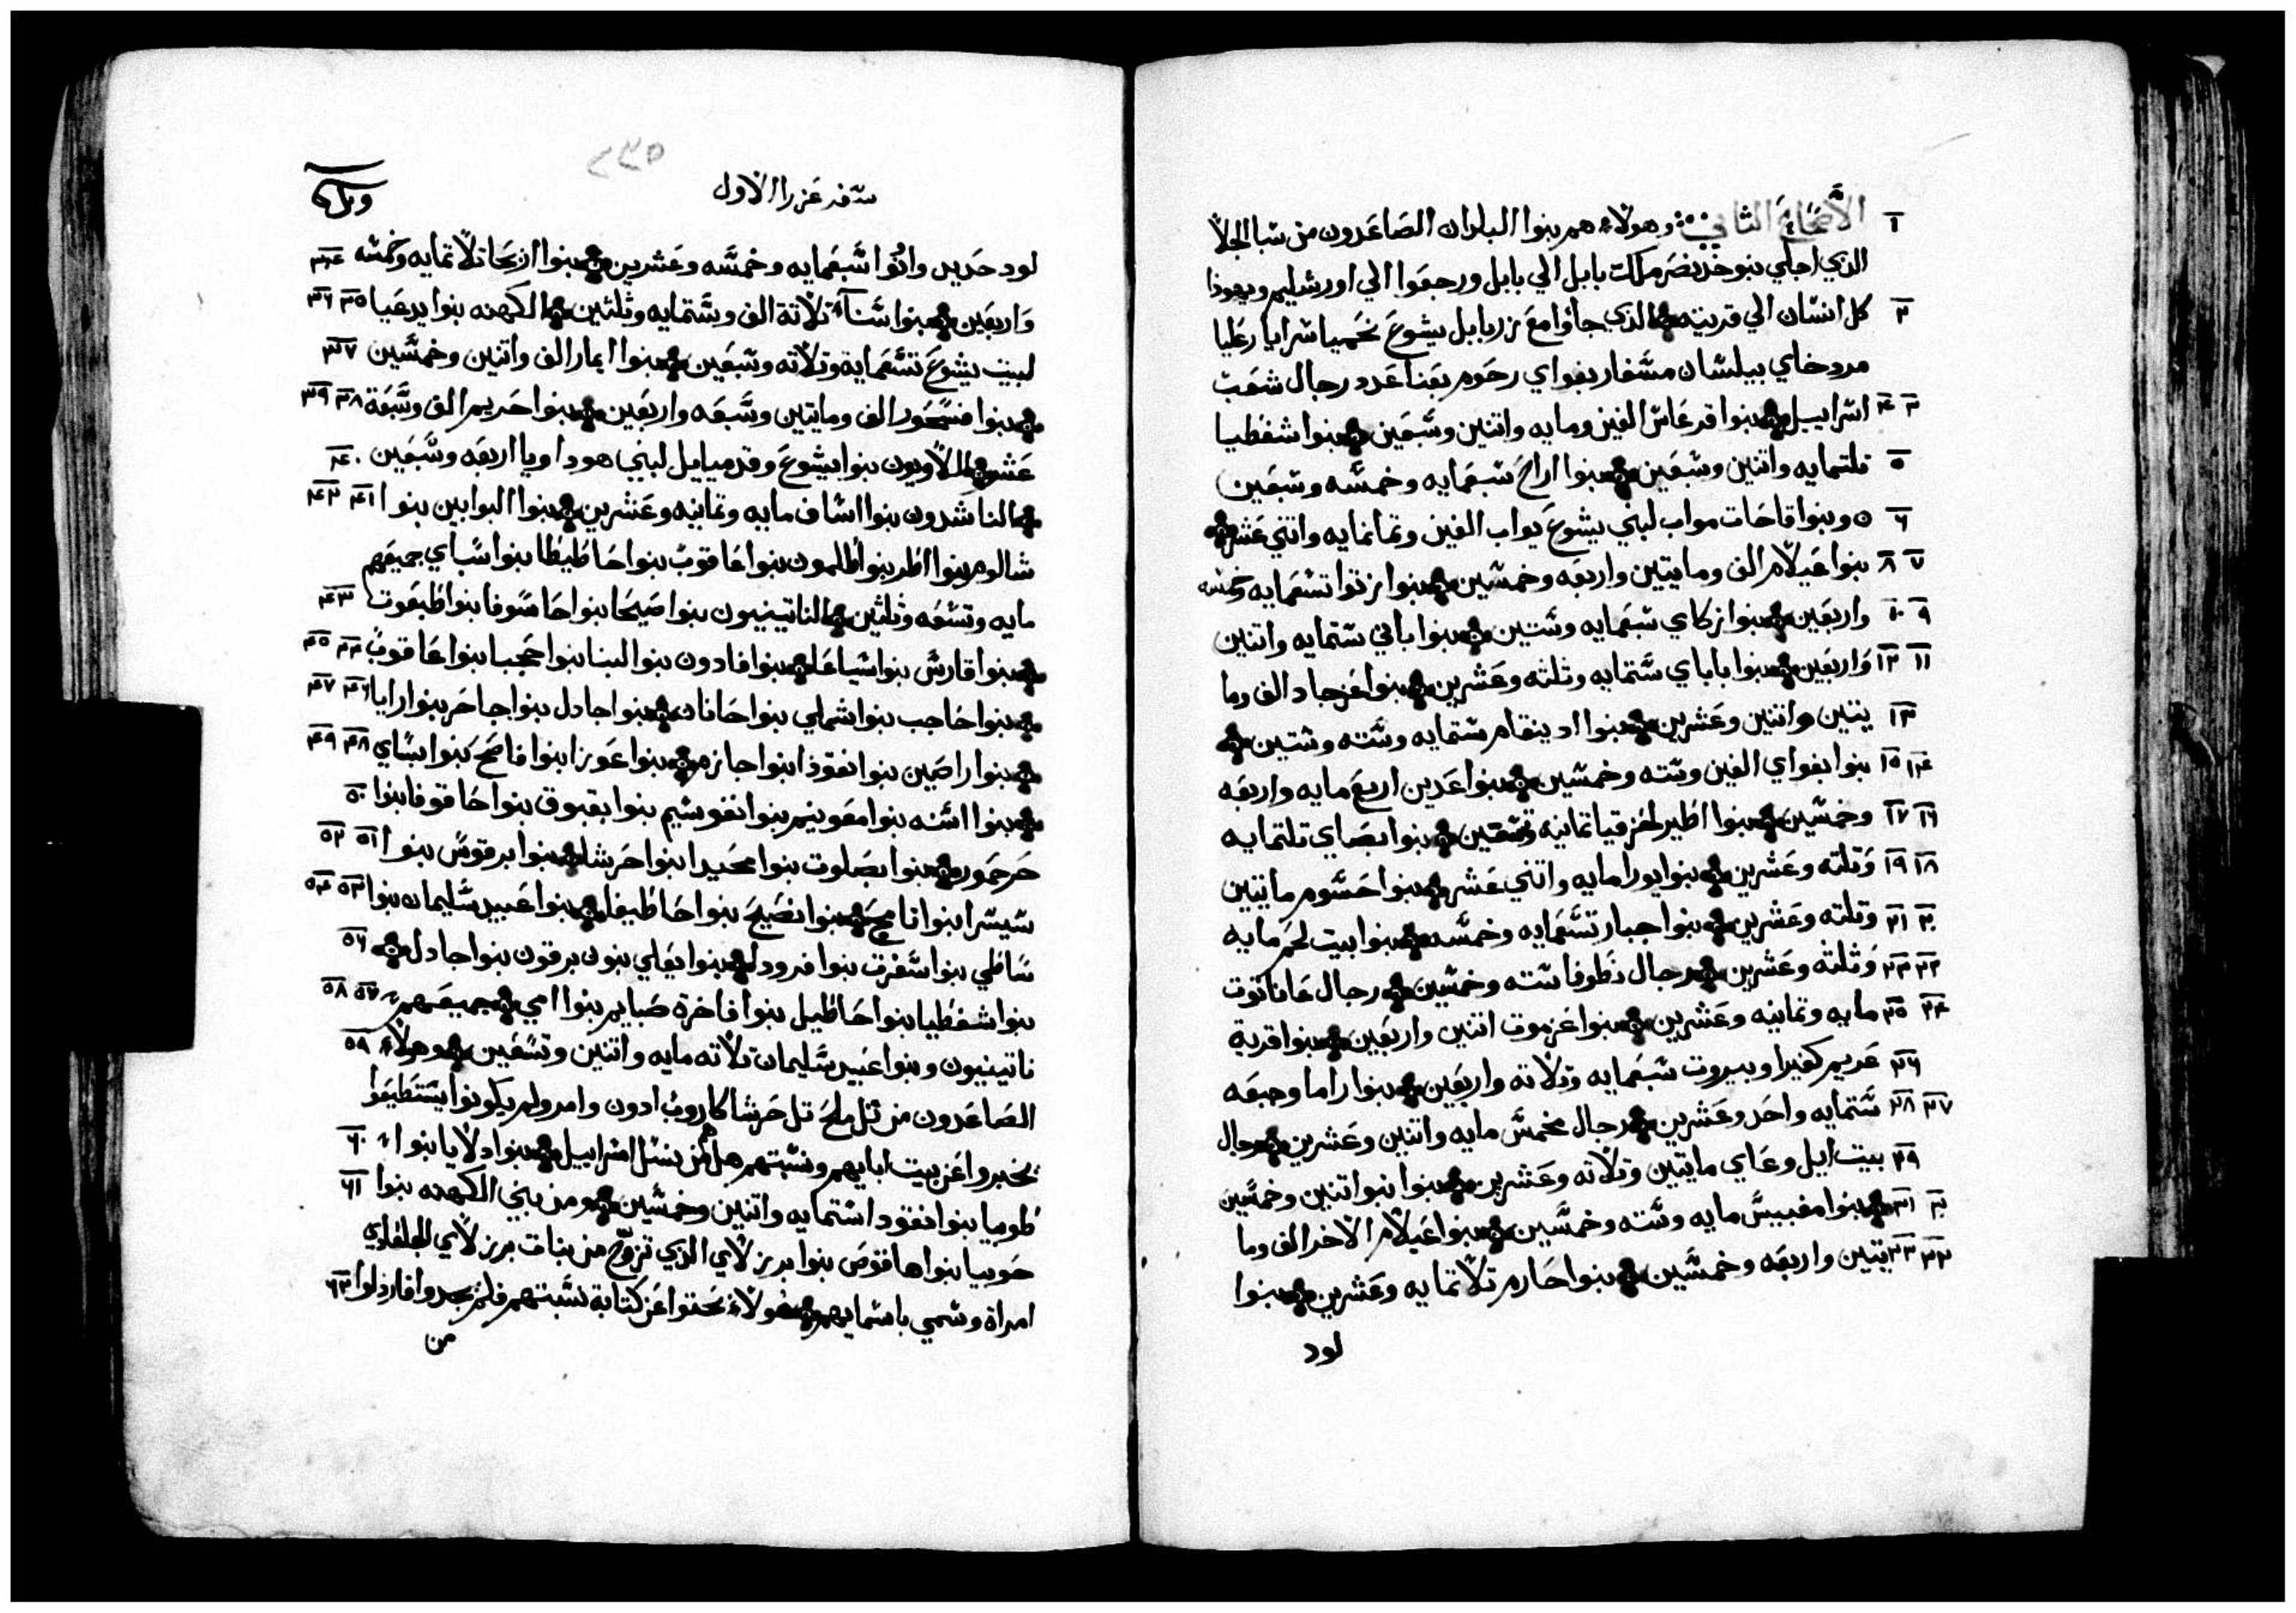 ١ الأصحاح الثاني وهولاء هم بنوا البلدان الصاعدون من سبا الجلا
الذي اجلي نبوخذنصر ملك بابل الي بابل ورجعوا الي اورشليم ويهوذا
٢ كل انسان الي قريته الذي جاوا مع زربابل يشوع نحميا سرايا رعليا
مردخاي بيلسان مسفار بغواي رحوم بعنا عدد رجال شعب
٣ ٤ اسراييل بنوا فرعاس الفين ومايه واتنين وسبعين بنوا شفطيا
٥ تلتمايه واتنين وسبعين بنوا اراح سبعمايه وخمسه وسبعين
٦ وبنوا فاحات مواب لبني يشوع يواب الفين وتمانمايه واتني عشر
٧ ٨ بنوا عيلام الف ومايتين واربعه وخمسين بنوا زتوا تسعمايه وخمسه
٩ ١٠ واربعين بنوا زكاي سبعمايه وستين بنوا باني ستمايه واتنين
١١ ١٢ واربعين بنوا باباي ستمايه وثلثه وعشرين بنوا عزجاد الف وما
١٣ يتين واتنين وعشرين بنوا ادينقام ستمايه وسته وستين
١٤ ١٥ بنوا بغواي الفين وسته وخمسين بنوا عدين اربع مايه واربعه
١٦ ١٧ وخمسين بنوا اطير لحزقيا تمانيه وتسعين بنوا بصاي تلتمايه
١٨ ١٩ وتلته وعشرين بنوا يورا مايه واتني عشر بنوا حسوم مايتين
٢٠ ٢١ وتلته وعشرين بنوا جبار تسعمايه وخمسه بنوا بيت لحم مايه
٢٢ ٢٣ وثلثه وعشرين رجال نطوفا سته وخمسين رجال عاناتوت
٢٤ ٢٥ مايه وتمانيه وعشرين بنوا عزموت اتنين واربعين بنوا قرية
٢٦ عريم كفيرا وبيروت سبعمايه وتلاته واربعين بنوا راما وجبعه
٢٧ ٢٨ ستمايه واحد وعشرين رجال مخمس مايه واتنين وعشرين رجال
٢٩ بيت ايل وعاي مايتين وتلاته وعشرين بنوا نبوا تنين وخمسين
٣٠ ٣١ بنوا مغبيس مايه وسته وخمسين بنوا عيلام الاخر الف وما
٣٢ ٣٣ يتين واربعه وخمسين بنوا حارم تلاتمايه وعشرين بنوا
لود
٢٣٥
سفر عزرا الاول
لود حديد وانوا سبعمايه وخمسه وعشرين بنوا اريحا تلاتمايه وخمسه ٣٤
واربعين بنوا سناآه تلاتة الف وستمايه وثلثين الكهنه بنوا يدعيا ٣٥ ٣٦
لبيت يشوع تسعمايه وتلاته وسبعين بنوا ايمار الف واتنين وخمسين ٣٧
بنوا فسحور الف ومايتين وسبعه واربعين بنوا حريم الف وسبعة ٣٨ ٣٩
عشر اللاويون بنوا يشوع وقدمياييل لبني هوداويا اربعه وسبعين ٤٠
الناشدون بنوا اساف مايه وتمانيه وعشرين بنوا البوابين بنوا ٤١ ٤٢
شالوم بنوا اطر بنوا طلمون بنوا عاقوب بنوا حاطيطا بنوا سباي جميعهم
مايه وتسعه وثلثين الناتينيون بنوا صيحا بنوا حاسوفا بنوا طبعوت ٤٣
بنوا قارس بنوا سياعا بنوا فادون بنوا لبنا بنوا حجبا بنوا عاقوب ٤٤ ٤٥
بنوا حاجب بنوا شملي بنوا حانان بنوا جادل بنوا جاحر بنوا رايا ٤٦ ٤٧
بنوا راصين بنوا نقوذا بنوا جازم بنوا عوزا بنوا فاصح بنوا بساي ٤٨ ٤٩
بنوا اسنه بنوا معونيم بنوا نفوسيم بنوا بقبوق بنوا حاقوفا بنوا ٥٠
حرحور بنوا بصلوت بنوا محيدا بنوا حرشا بنوا برقوس بنوا ٥١ ٥٢
سيسرا بنوا تامح بنوا نصيح بنوا حاطيفا بنوا عبيد سليمان بنوا ٥٣ ٥٤
ساطي بنوا سفرت بنوا فرودا بنوا يعلي بنون برقون بنوا جادل ٥٦
بنوا شفطيا بنوا حاطيل بنوا فاخرة صبايم بنوا امي جميعهم ٥٧ ٥٨
ناتينيون وبنوا عبيد سليمان تلاته مايه واتنين وتسعين وهولاء ٥٩
الصاعدون من تل ملح تل حرشا كاروب ادون وامر ولم يكونوا يستطيعوا
يخبروا عن بيت ابايهم ونسبتهم هل هم من نسل اسراييل بنوا دلايا بنوا ٦٠
طوبيا بنوا نقودا ستمايه واتنين وخمسين ومن بني الكهنه بنوا ٦١
حوبيا بنوا هاقوص بنوا برزلاي الذي تزوج من بنات برزلاي الجلعادي
امراة وسمي باسمايهم هولاء بحتوا عن كتابة نسبتهم فلم يجدوا فارذلوا ٦٢
من